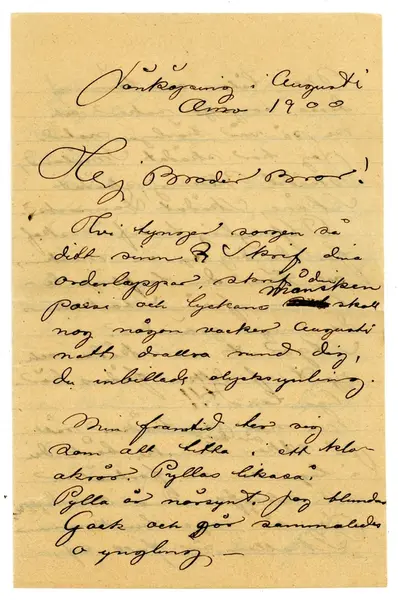 Jönköping i Augusti
Anno 1900
Hej Broder Bror!
Hvi tynger sorgen så
ditt sinn Skrif dina
orderlappar, månsken
Poesi och lyckans skall
nog någon vacker Augusti
natt drattra rund dig,
du inbillade olycksyngling.
Min framtid ter sig
som att titta i ett
Pyllas likaså.
Pylla är närsynt, jag blundar
Gack och gör sammaledes
o yngling –